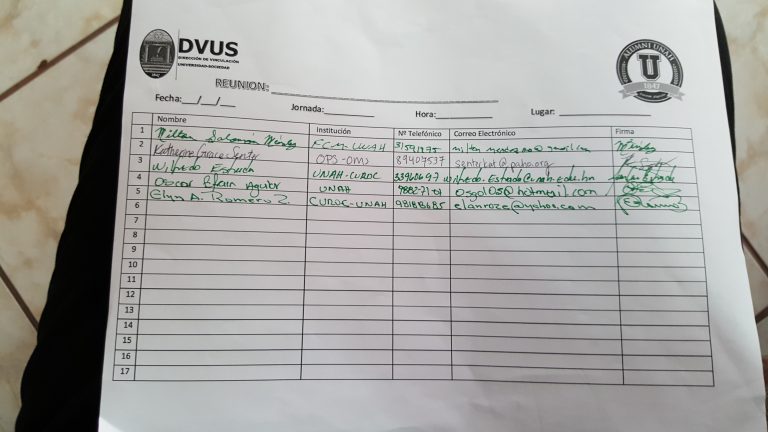 DVUS
DIRECCIÓN DE VINCULACIÓN
UNIVERSIDAD-SOCIEDAD
ALUMNI UNAH
U
1847
REUNION:
Fecha:__/__/__ Jornada: Hora: Lugar:
Nombre Institución Nº Telefónico Correo Electrónico Firma
1 Salomón Méndez UNAH 31591175
2 Katherine Grace OPS-OMS 89407537 @paho.org
3 Wilfredo Estrada UNAH-CUROC 33960697 wilfredo.Estrada@unah.edu.hn
4 Oscar Efrain Aguilar UNAH @hotmail.com
5 Elyn A. Romero Z. CUROC-UNAH 98188685 elanroze@yahoo.com
6
7
8
9
10
11
12
13
14
15
16
17